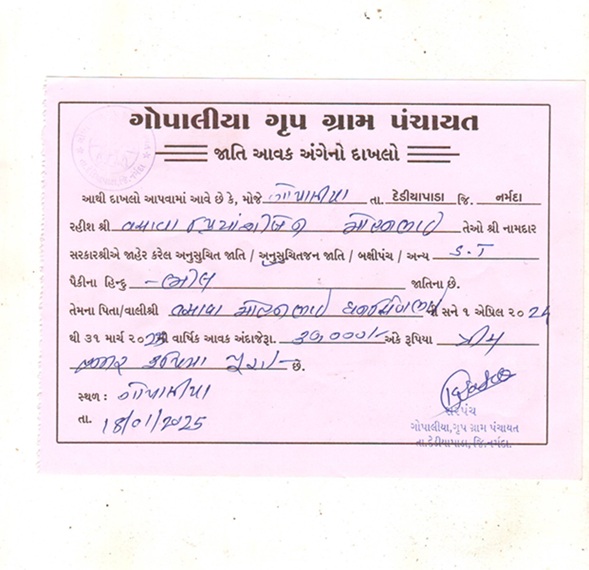 ગોપાલીયા ગૃપ ગ્રામ પંચાયત
જાતિ આવક અંગેનો દાખલો
આથી દાખલો આપવામાં આવે છે કે, મોજે ગોપાલીયા તા. દેડીયાપાડા જિ. નર્મદા
રહીશ શ્રી વસાવા તેઓ શ્રી નામદાર
સરકારશ્રીએ જાહેર કરેલ અનુસુચિત જાતિ / અનુસુચિતજન જાતિ / બક્ષીપંચ / અન્ય S.T
પૈકીના હિન્દુ - ભીલ જાતિના છે.
તેમના પિતા/વાલીશ્રી વસાવા ની સને ૧ એપ્રિલ ૨૦24
થી ૩૧ માર્ચ ૨૦25ની વાર્ષિક આવક અંદાજેરૂા. 30,000/- અંકે રૂપિયા ત્રીસ
હજાર રૂપિયા પુરા/- છે.
સ્થળ : ગોપાલીયા
તા. 18/01/2025
સરપંચ
ગોપાલીયા,ગૃપ ગ્રામ પંચાયત
તા.દેડીયાપાડા,જિ.નર્મદા.